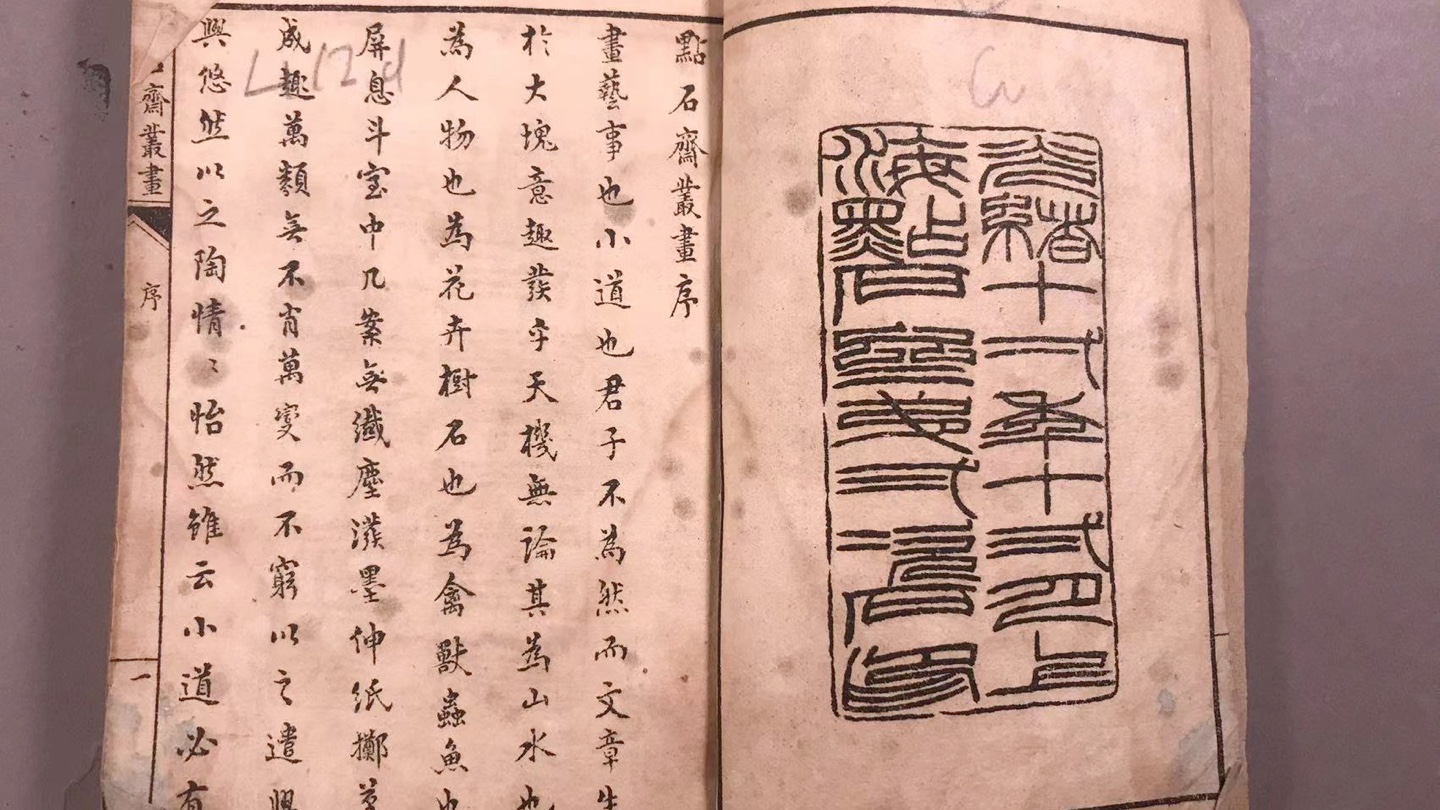 光緒十弌年十弍月上
海點石齋
石印
點石齋叢畫序
畫藝事也小道也君子不為然而文章生
於大塊意趣發乎天機無論其為山水也
為人物也為花卉樹石也為禽獸蟲魚也
屏息斗室中几案無纖塵潑墨伸紙擲
成趣萬類無不肖萬變而不窮以之遣興
興悠然以之陶情〻怡然雖云小道必有
石齋叢畫
序
一